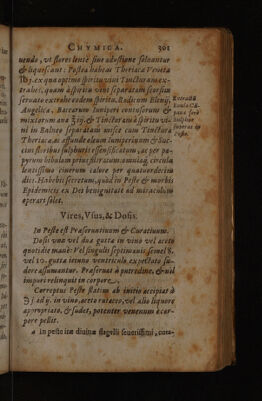 CHYMICA. 301
nendo, ut flores lentè sine adustione soluantur
& liquescant: Postea habeas Theriacæ Venetæ
℔j. ex qua optimo spiritu vini Tincturam ex-
trahes, quam à spiritu vini separatam seorsim
seruato extrahe eodem spiritu, Radicum
Angelicæ, Baccarum Iuniperi contusorum &
mixtorum ana ʒiij. & Tincturam à spiritu vi-
ni in Balneo separatam misce cum Tinctura
Theriacæ, ac affunde oleum iuniperinum & Suc-
cini floribus sulphuris essensificatum, ac per pa-
pyrum bibulam prius filtratum, omniaq́; circula
lentissimo cinerum calore per quatuordecim
dies. Habebis secretum, quod in Peste & morbis
Epidemicis ex Dei benignitate ad miraculum
operari solet.
Vires, Vsus, & Dosis.
In Peste est Præseruatiuum & Curatiuum.
Dosis vnæ vel duæ guttæ in vino vel aceto
quotidie manè: Vel singulis septimanis semel 8.
vel 10. guttæ ieiuno ventriculo expectato su-
dore assumantur. Præseruat à putredine, & nil
impuri relinquit in corpore.
Correptus Peste statim ab initio accipiat à
Ʒj ad ij. in vino, aceto rutaceo, vel alio liquore
appropriato, & sudet, potenter venenum è cor-
pore pellit.
a in peste iræ diuinæ flagelli seuerissimi, cura-